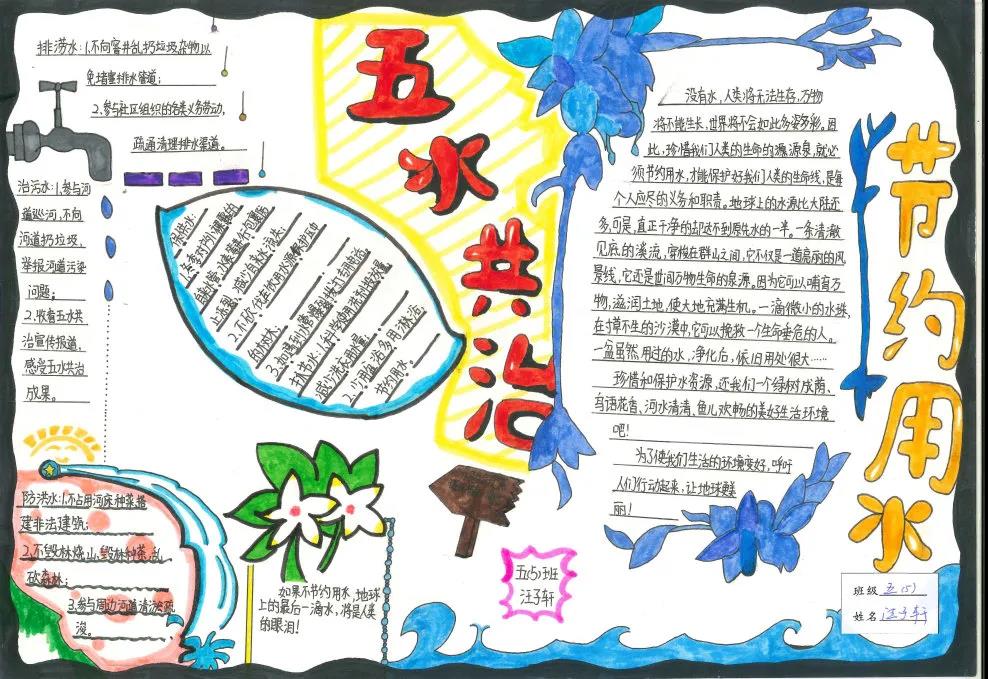 五水共治
节约用水
排涝水：1.不向窨井乱扔垃圾杂物以
免堵塞排水管道；
2.参与社区组织的各类义务劳动，
疏通清理排水渠道。
治污水：1.参与河
道巡河，不向
河道扔垃圾，
举报河道污染
问题；
2.收看五水共
治宣传报道，
感受五水共治
成果。
保供水：
1.冬季对户外裸露的
自来水管、水表进行包裹防
止冻裂，减少自来水流失；
2.不砍伐走饮用水源保护区中
的树木；
3.如遇到水管爆裂拨打专线电话
抓节水：1.科学使用洗剂投放量，
减少洗衣用量。
2.少用盆浴多用淋浴，
节约用水。
防洪水：1.不占用河床种菜、搭
建非法建筑；
2.不毁林烧山，毁林种菜，乱
砍森林；
3.参与周边河道清淤疏
浚。
如果不节约用水，地球
上的最后一滴水，将是人类
的眼泪！
五（5）班
汪子轩
没有水，人类将无法生存，万物
将不能生长，世界将不会如此多姿多彩。因
此，珍惜我们人类的生命的源源泉，就必
须节约用水，才能保护好我们人类的生命线，是每
个人应尽的义务和职责。地球上的水源比大陆还
多，可是，真正干净的却达不到原先水的一半。一条清澈
见底的溪流，穿梭在群山之间，它不仅是一道亮丽的风
景线，它还是世间万物生命的泉源。因为它可以哺育万
物，滋润土地，使大地充满生机。一滴微小的水珠，
在寸草不生的沙漠中，它可以挽救一个生命垂危的人。
一盆虽然用过的水，净化后，依旧用处很大……
珍惜和保护水资源，还我们一个绿树成荫、
鸟语花香、河水清清、鱼儿欢畅的美好生活环境
吧！
为了使我们生活的环境变好，呼吁
人们行动起来，让地球更美
丽！
班级 五（5）
姓名 汪子轩